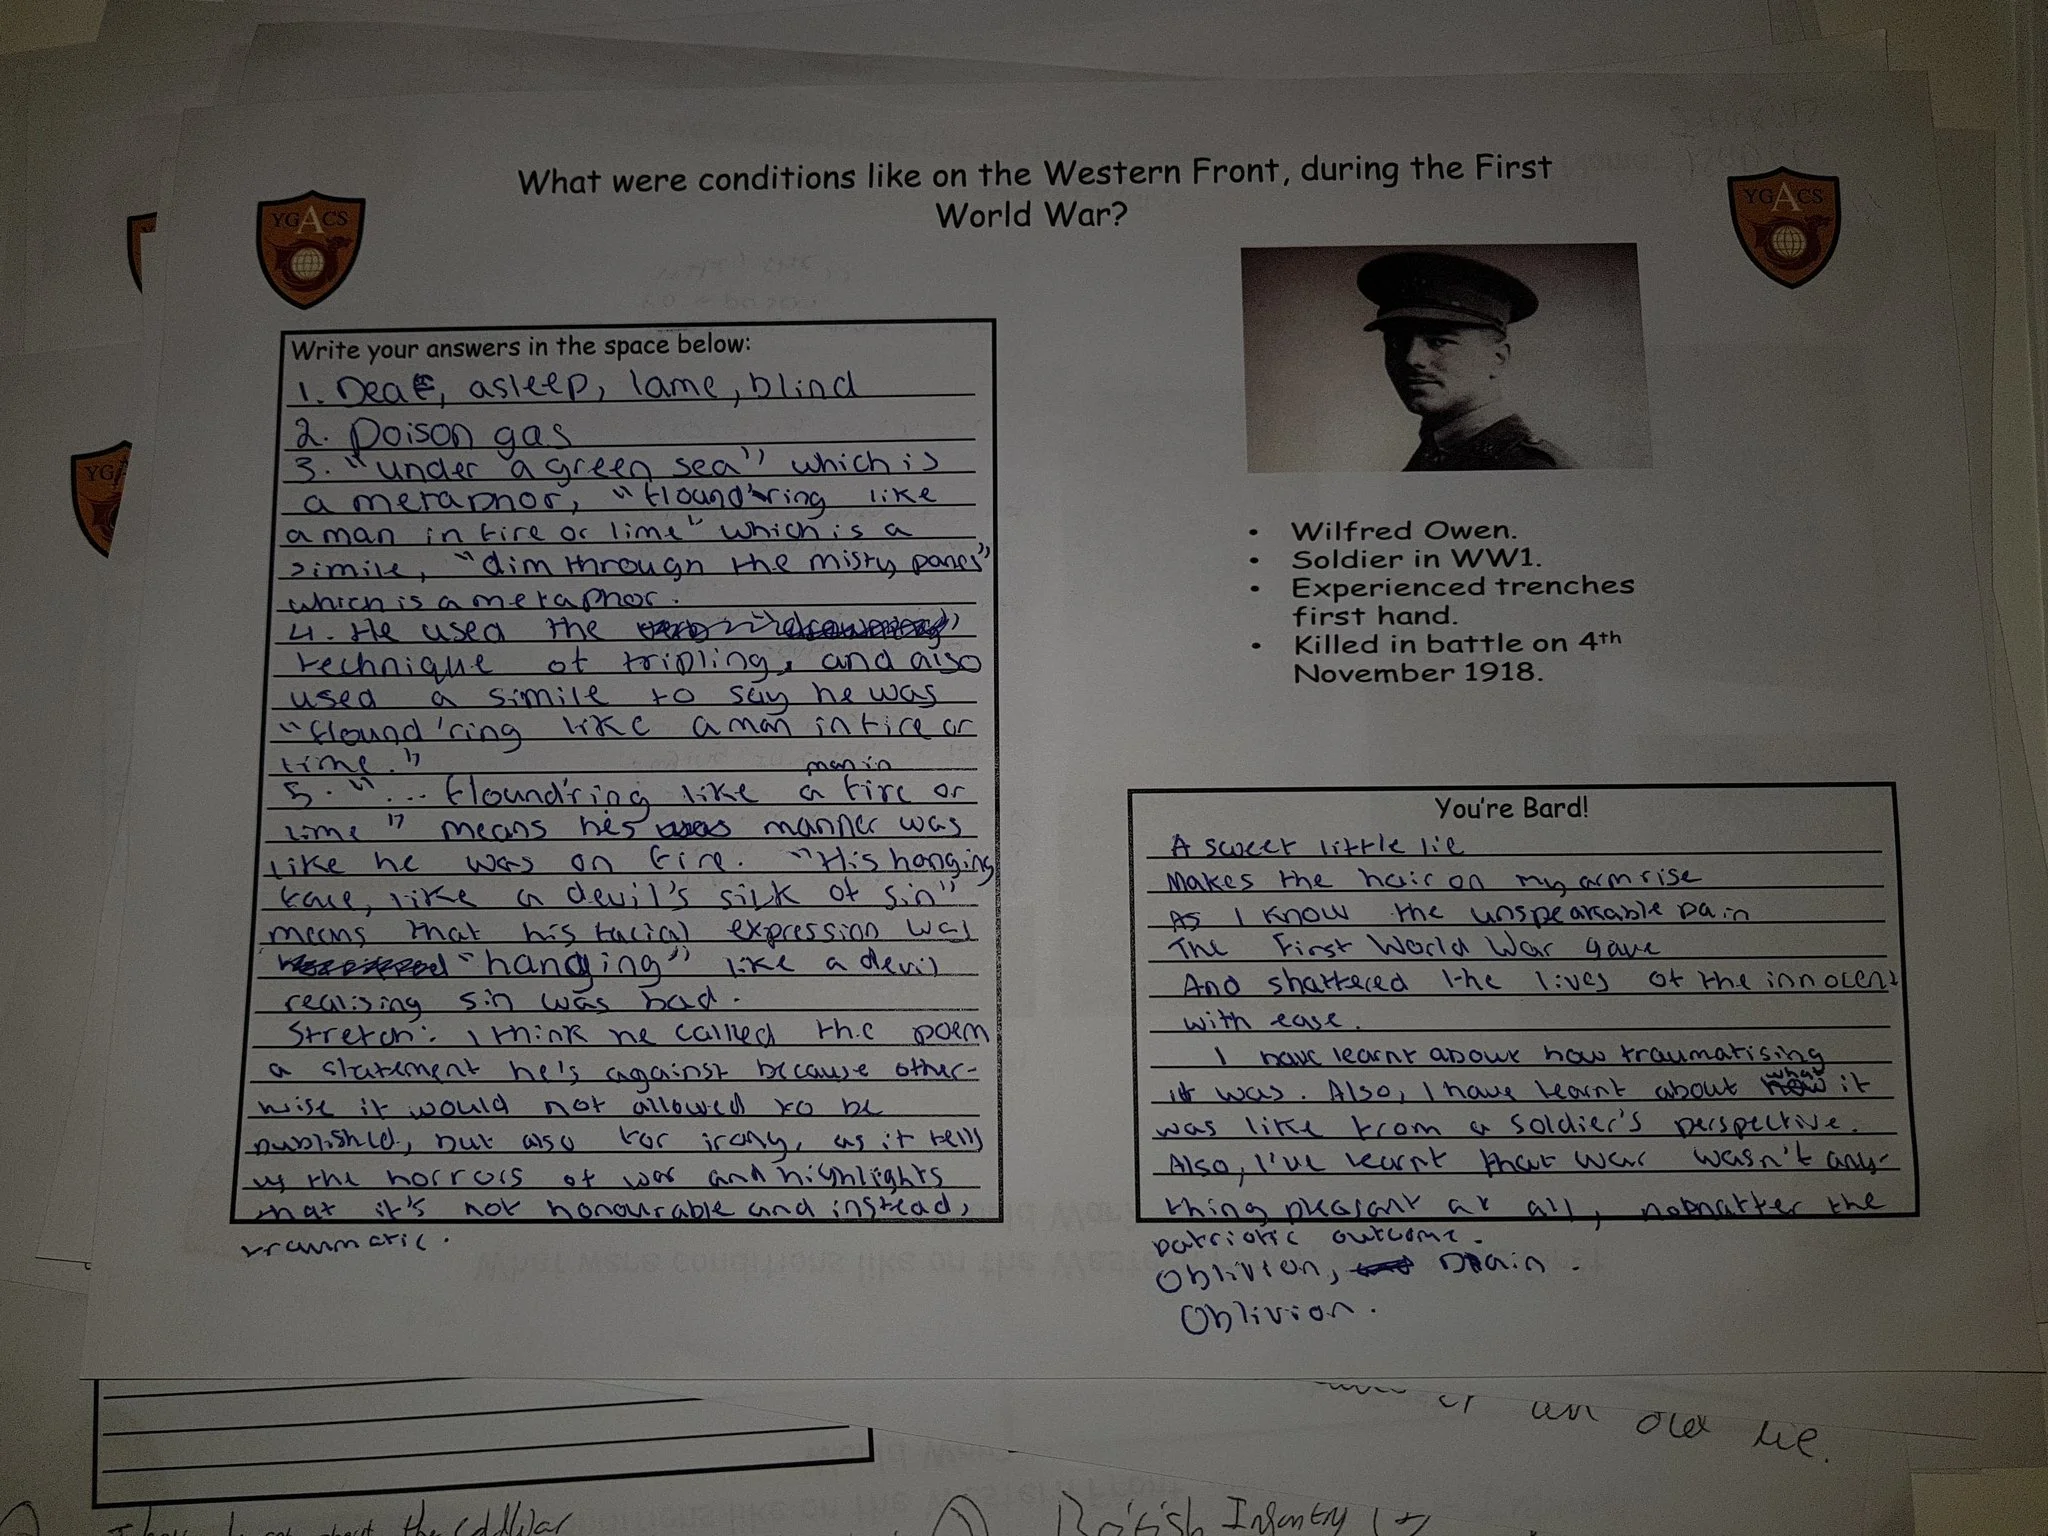 What were conditions like on the Western Front, during the First
World War?
YGACS
YGACS
Write your answers in the space below:
1. Deaf, asleep, lame, blind
2. Poison gas
3. "under a green sea" which is
a metaphor, "flound'ring like
a man in fire or lime" which is a
simile, "dim through the misty panes"
which is a metaphor.
4. He used the
technique of tripling, and also
used a simile to say he was
"flound'ring like a man in fire or
lime."
man in
5. "... flound'ring like a fire or
lime" means his manner was
like he was on fire. "His hanging
face, like a devil's sick of sin"
means that his facial expression was
"hanging" like a devil
realising sin was bad.
Stretch: I think he called the poem
a statement he's against because other-
wise it would not allowed to be
published, but also for irony, as it tells
us the horrors of war and highlights
that it's not honourable and instead,
traumatic.
Wilfred Owen.
Soldier in WW1.
Experienced trenches
first hand.
Killed in battle on 4th
November 1918.
You're Bard!
A sweet little lie
Makes the hair on my arm rise
As I know the unspeakable pain
The First World War gave
And shattered the lives of the innocent
with ease.
I have learnt about how traumatising
it was. Also, I have learnt about what it
was like from a soldier's perspective.
Also, I've learnt that war wasn't any-
thing pleasant at all, no matter the
patriotic outcome.
Oblivion, Drain.
Oblivion.
YG
an old lie.
about the
British Infantry